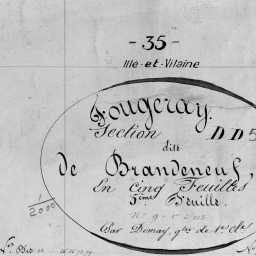 - 35 -
Ille-et-Vilaine
Fougeray.
Section D D 5
dite
de Brandeneuf,
En Cinq Feuilles
5ème Feuille.
1/2000
Par Demay, gtre de 1re Cle